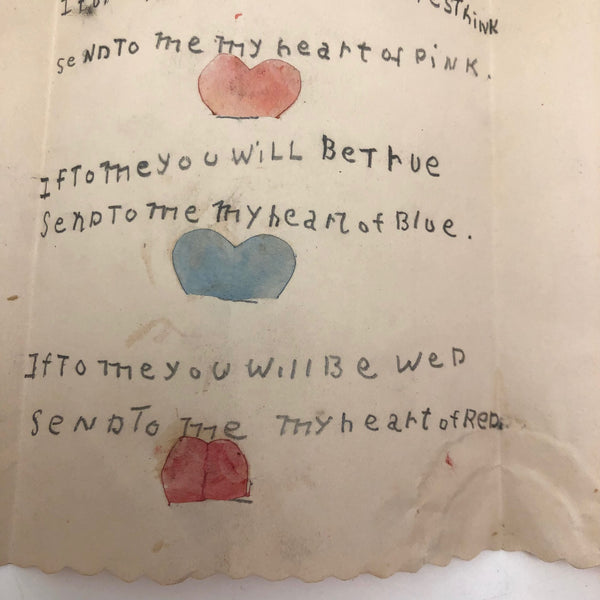 Think
Send To me my heart of Pink.
If To me you Will Be True
Send To me my heart of Blue.
If To me you Will Be Wed
Send To me my heart of Red.